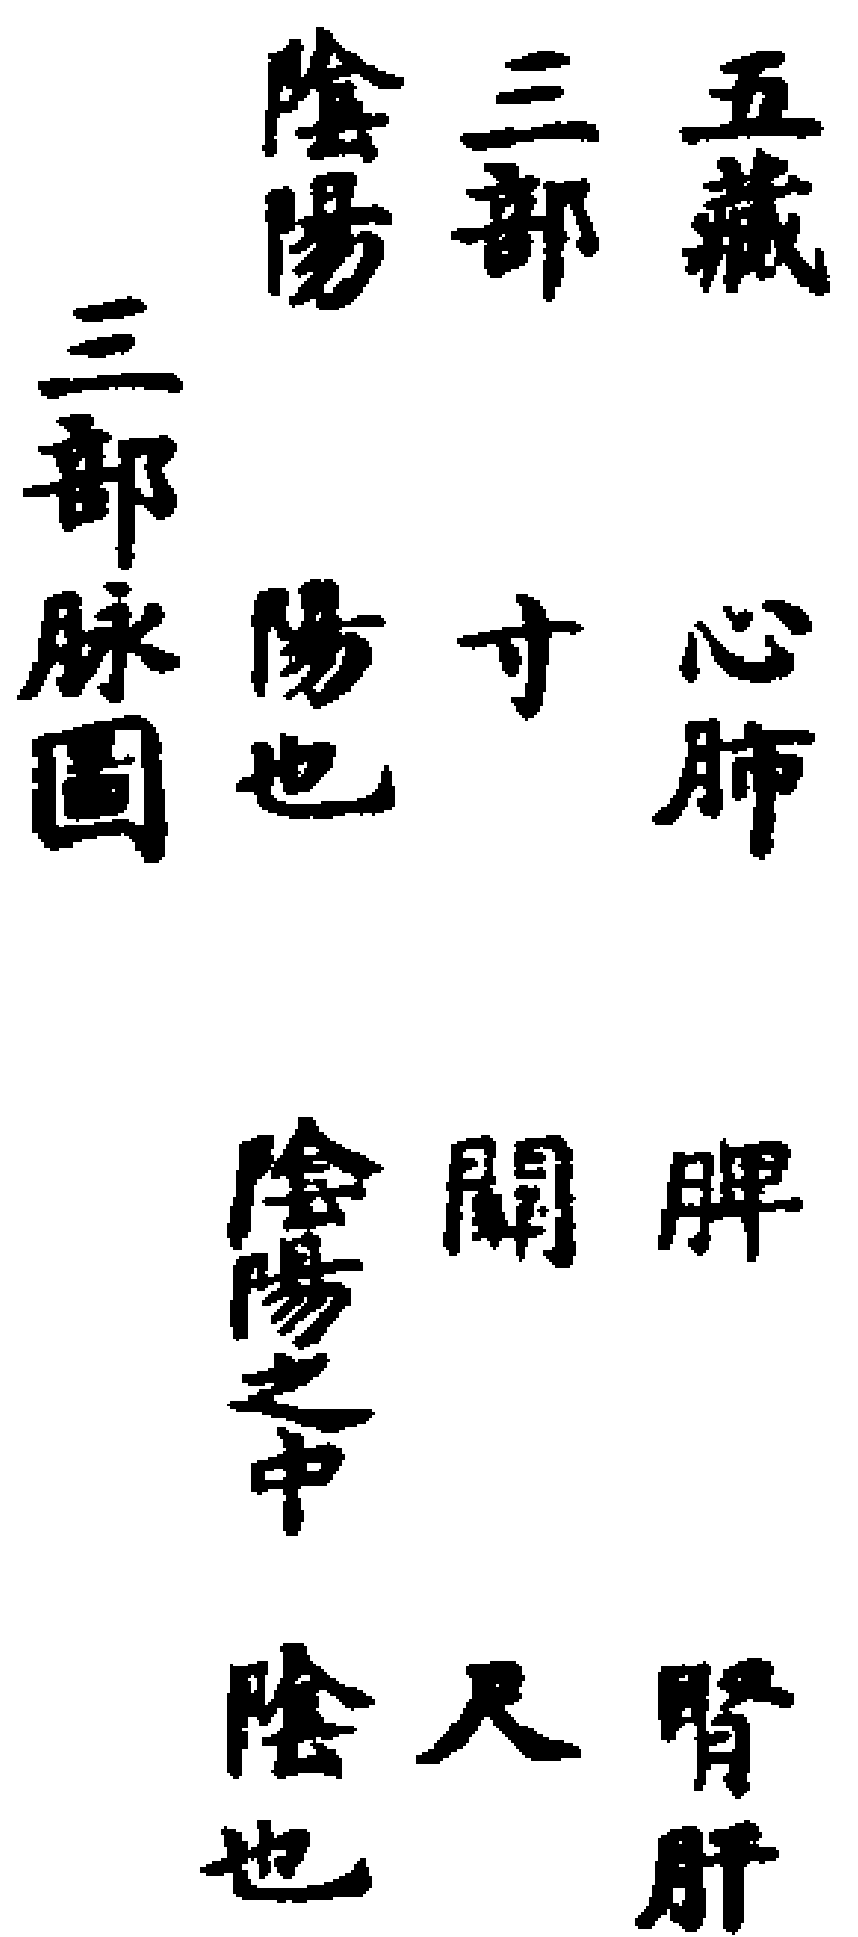 五藏
心肺
脾
腎肝
三部
寸
關
尺
陰陽
陽也
陰陽之中
陰也
三部脉圖